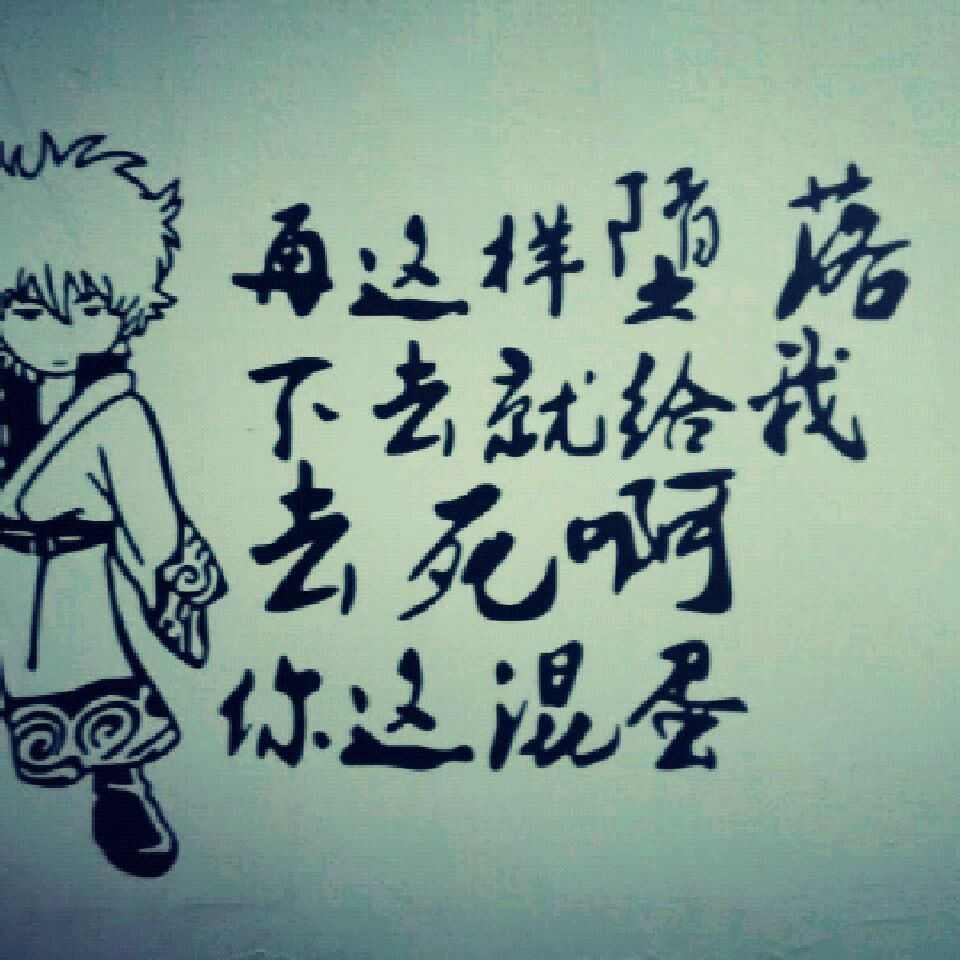 再这样堕落
下去就给我
去死啊
你这混蛋